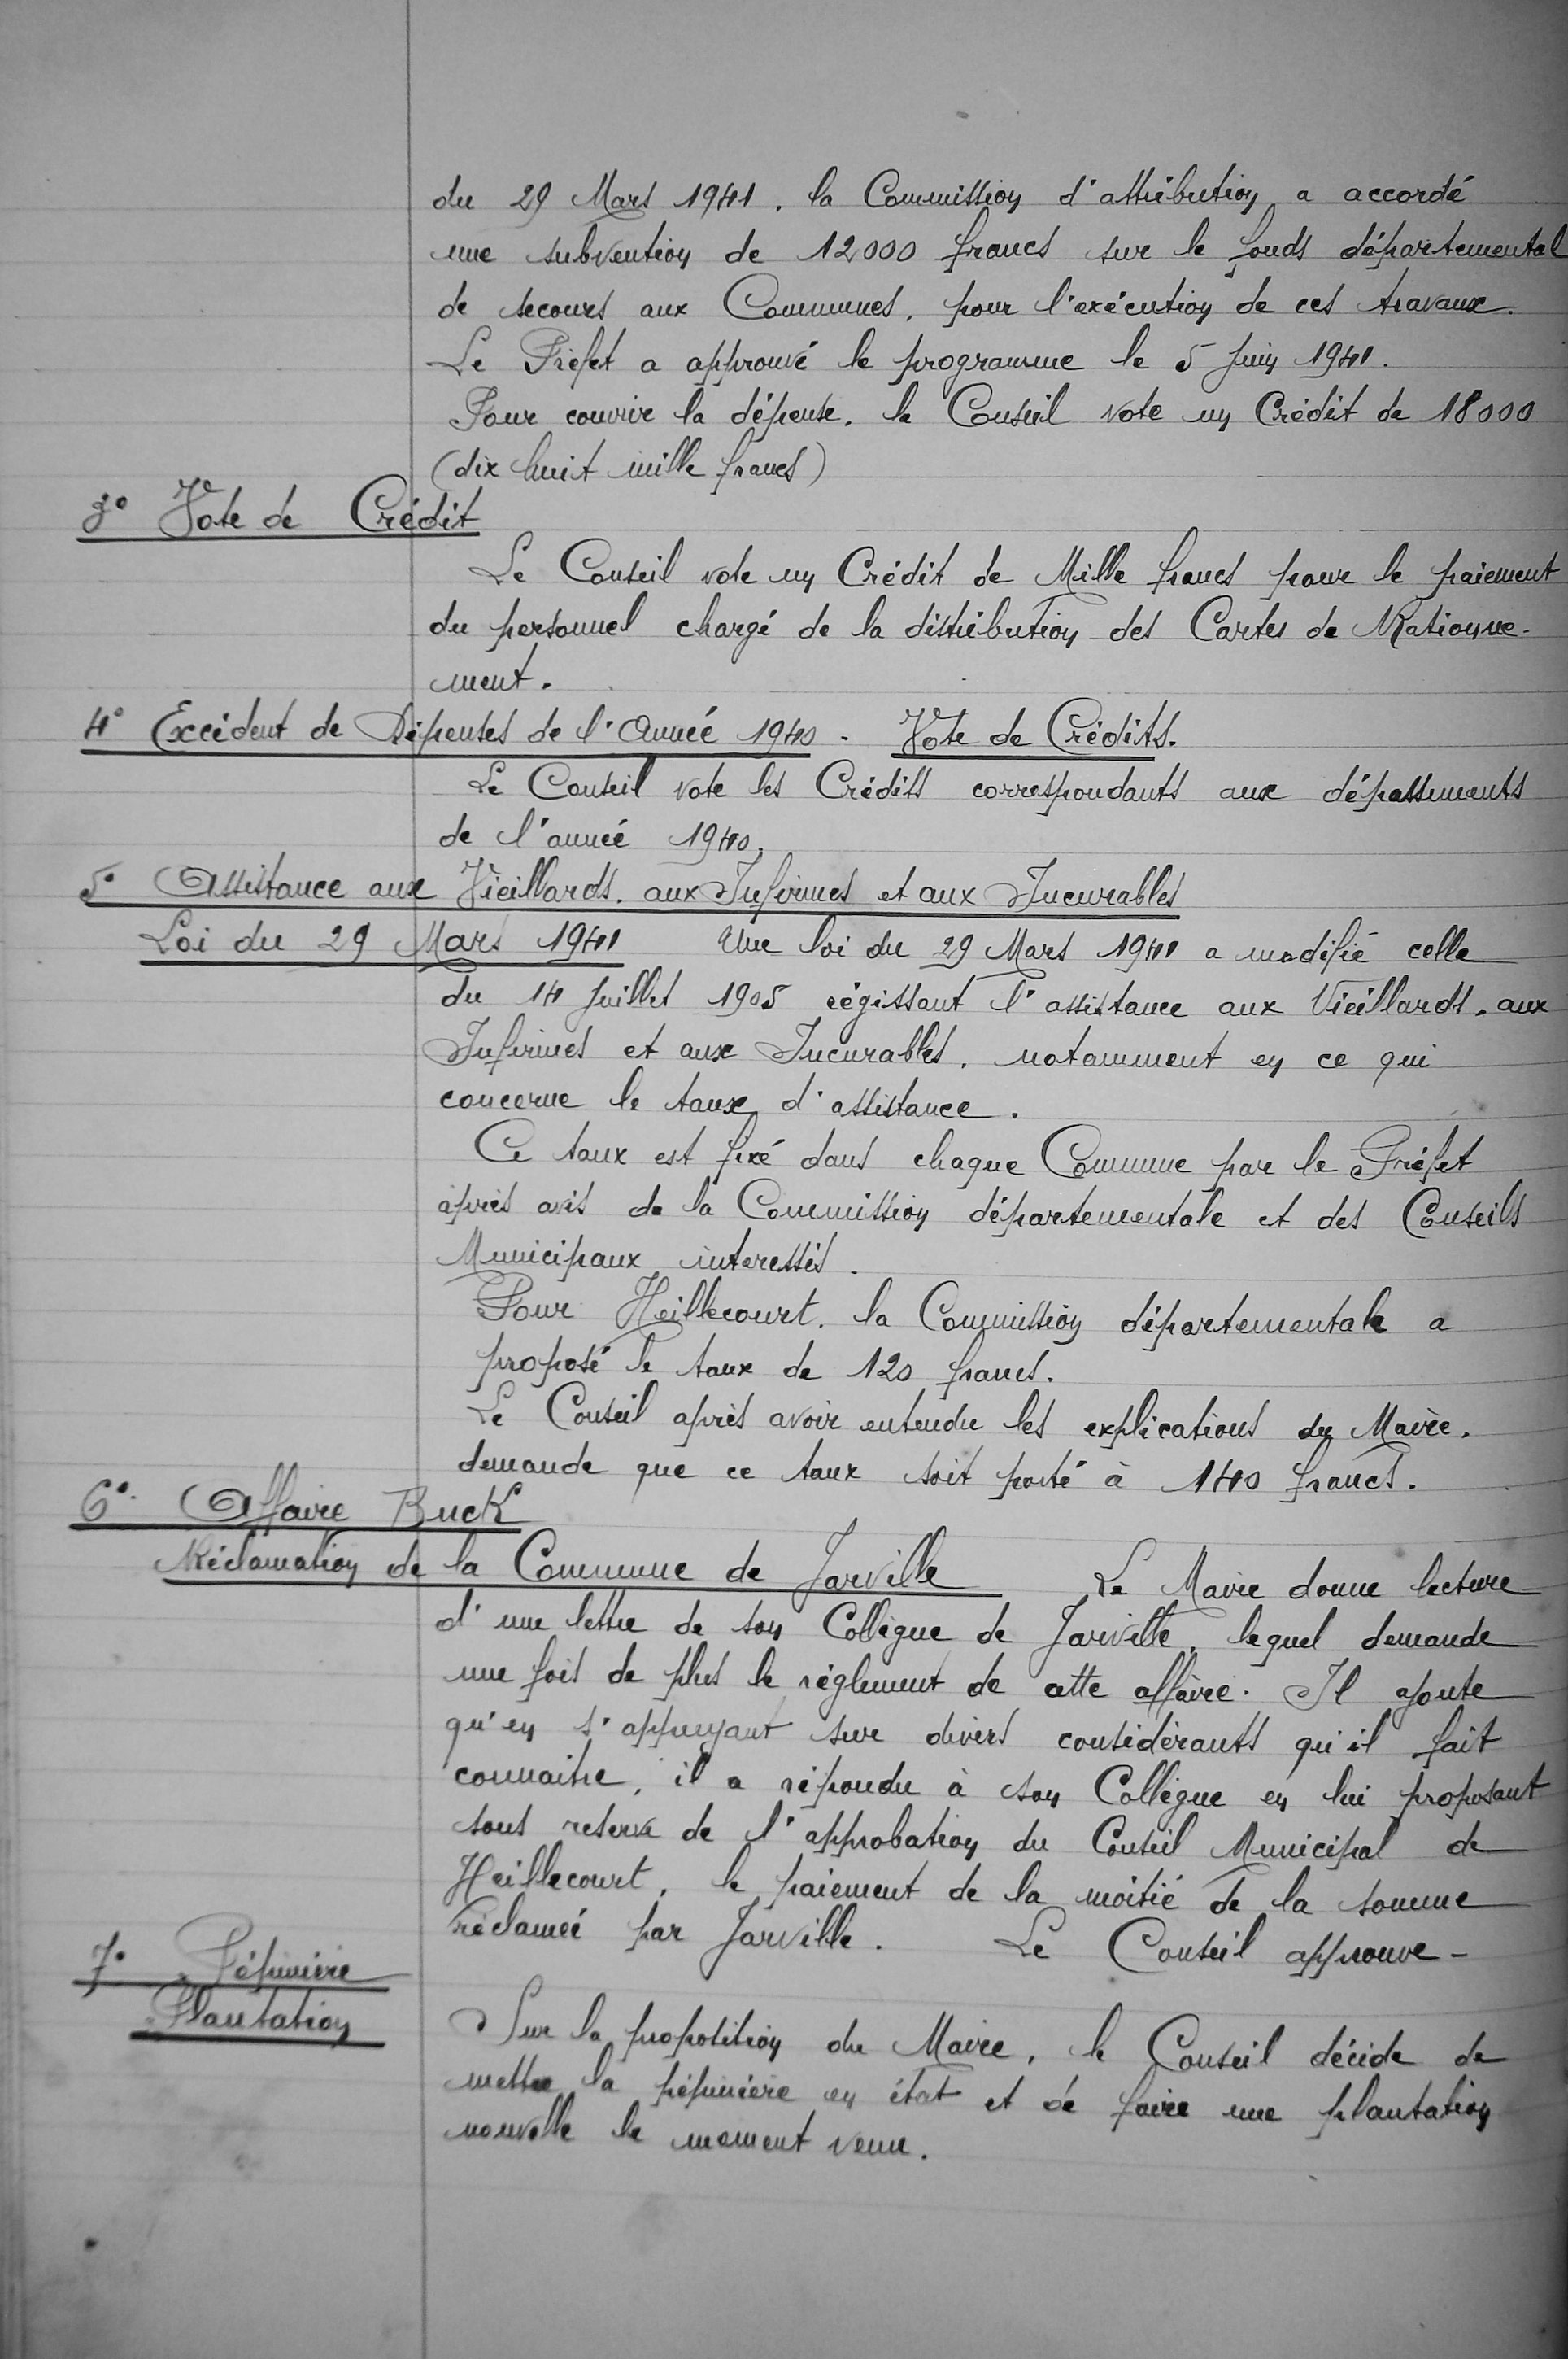 du 29 Mars 1941. la Commission d'attribution a accordé
une subvention de 12000 francs sur le fonds départemental
de secours aux Communes, pour l'exécution de ces travaux.
Le Préfet a approuvé le programme le 5 Juin 1941.
Pour couvrir la dépense, le Conseil vote un Crédit de 18000
(dix huit mille francs)
3° Vote de Crédit
Le Conseil vote un Crédit de Mille francs pour le paiement
du personnel chargé de la distribution des Cartes de Rationne-
ment.
4° Excédent de Dépenses de l'Année 1940 - Vote de Crédits.
Le Conseil vote les Crédits correspondants aux dépassements
de l'année 1940.
5° Assistance aux Vieillards. aux Infirmes et aux Incurables
Loi du 29 Mars 1941 Une loi du 29 Mars 1941 a modifié celle
du 14 Juillet 1905 régissant l'assistance aux Vieillards, aux
Infirmes et aux Incurables, notamment en ce qui
concerne le taux d'assistance.
Ce taux est fixé dans chaque Commune par le Préfet
après avis de la Commission départementale et des Conseils
Municipaux interessés.
Pour Heillecourt, la Commission départementale a
proposé le taux de 120 francs.
Le Conseil après avoir entendu les explications du Maire,
demande que ce taux soit porté à 140 francs.
6° Affaire Buck
Réclamation de la Commune de Jarville Le Maire donne lecture
d'une lettre de son Collègue de Jarville, lequel demande
une fois de plus le règlement de cette affaire. Il ajoute
qu'en s'appuyant sur divers considérants qu'il fait
connaitre, il a répondu à son Collègue en lui proposant
sous reserve de l'approbation du Conseil Municipal de
Heillecourt, le paiement de la moitié de la somme
réclamée par Jarville. Le Conseil approuve -
7° Pépinière
Plantation
Sur la proposition du Maire, le Conseil décide de
mettre la pépinière en état et de faire une plantation
nouvelle le moment venu.